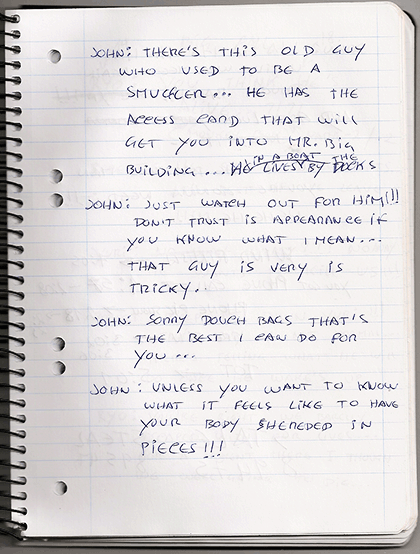 JOHN: THERE'S THIS OLD GUY
WHO USED TO BE A
SMUGGLER... HE HAS THE
ACCESS CARD THAT WILL
GET YOU INTO MR. BIG
BUILDING... HE LIVES IN A BOAT BY THE DOCKS
JOHN: JUST WATCH OUT FOR HIM!!!
DON'T TRUST IS APPEARANCE IF
YOU KNOW WHAT I MEAN...
THAT GUY IS VERY IS
TRICKY..
JOHN: SORRY DOUCH BAGS THAT'S
THE BEST I CAN DO FOR
YOU...
JOHN: UNLESS YOU WANT TO KNOW
WHAT IT FEELS LIKE TO HAVE
YOUR BODY SHEREDED IN
PIECES!!!